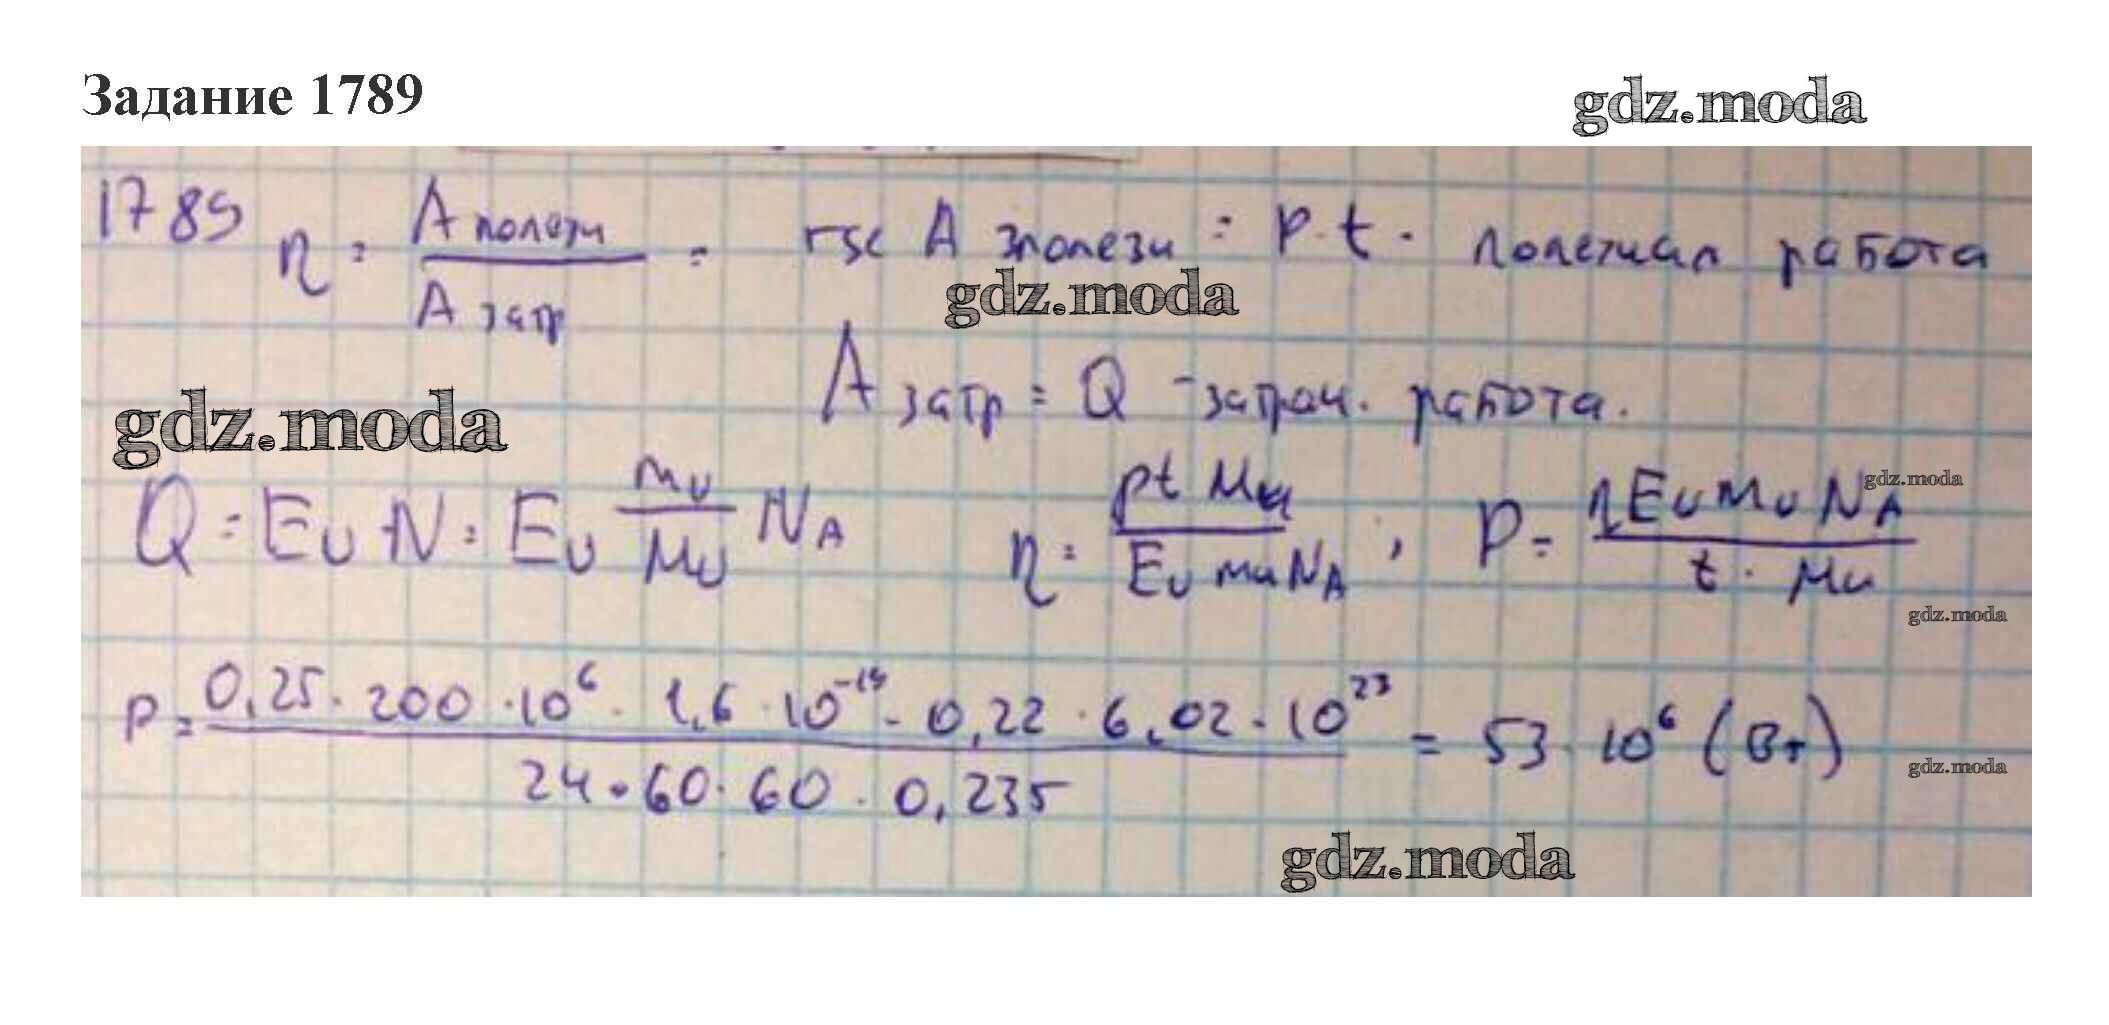 Задание 1789
gdz.moda
1789 η = A полезн / A затр = где A полезн = P·t · полезная работа
gdz.moda
A затр = Q - затрач. работа.
gdz.moda
Q = E_U·N = E_U m_U / M_U N_A η = Pt M_U / E_U m_U N_A ; P = η E_U m_U N_A / t · M_U
gdz.moda
gdz.moda
P = 0,25 · 200 · 10⁶ · 1,6 · 10⁻¹⁹ · 0,22 · 6,02 · 10²³ / 24 · 60 · 60 · 0,235 = 53 · 10⁶ (Вт)
gdz.moda
gdz.moda